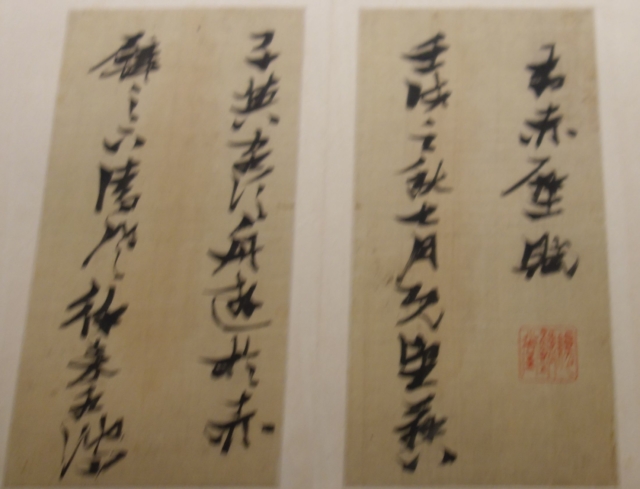 前赤壁賦
壬戌之秋七月既望蘇
子與客泛舟遊於赤
壁之下清風徐來水波